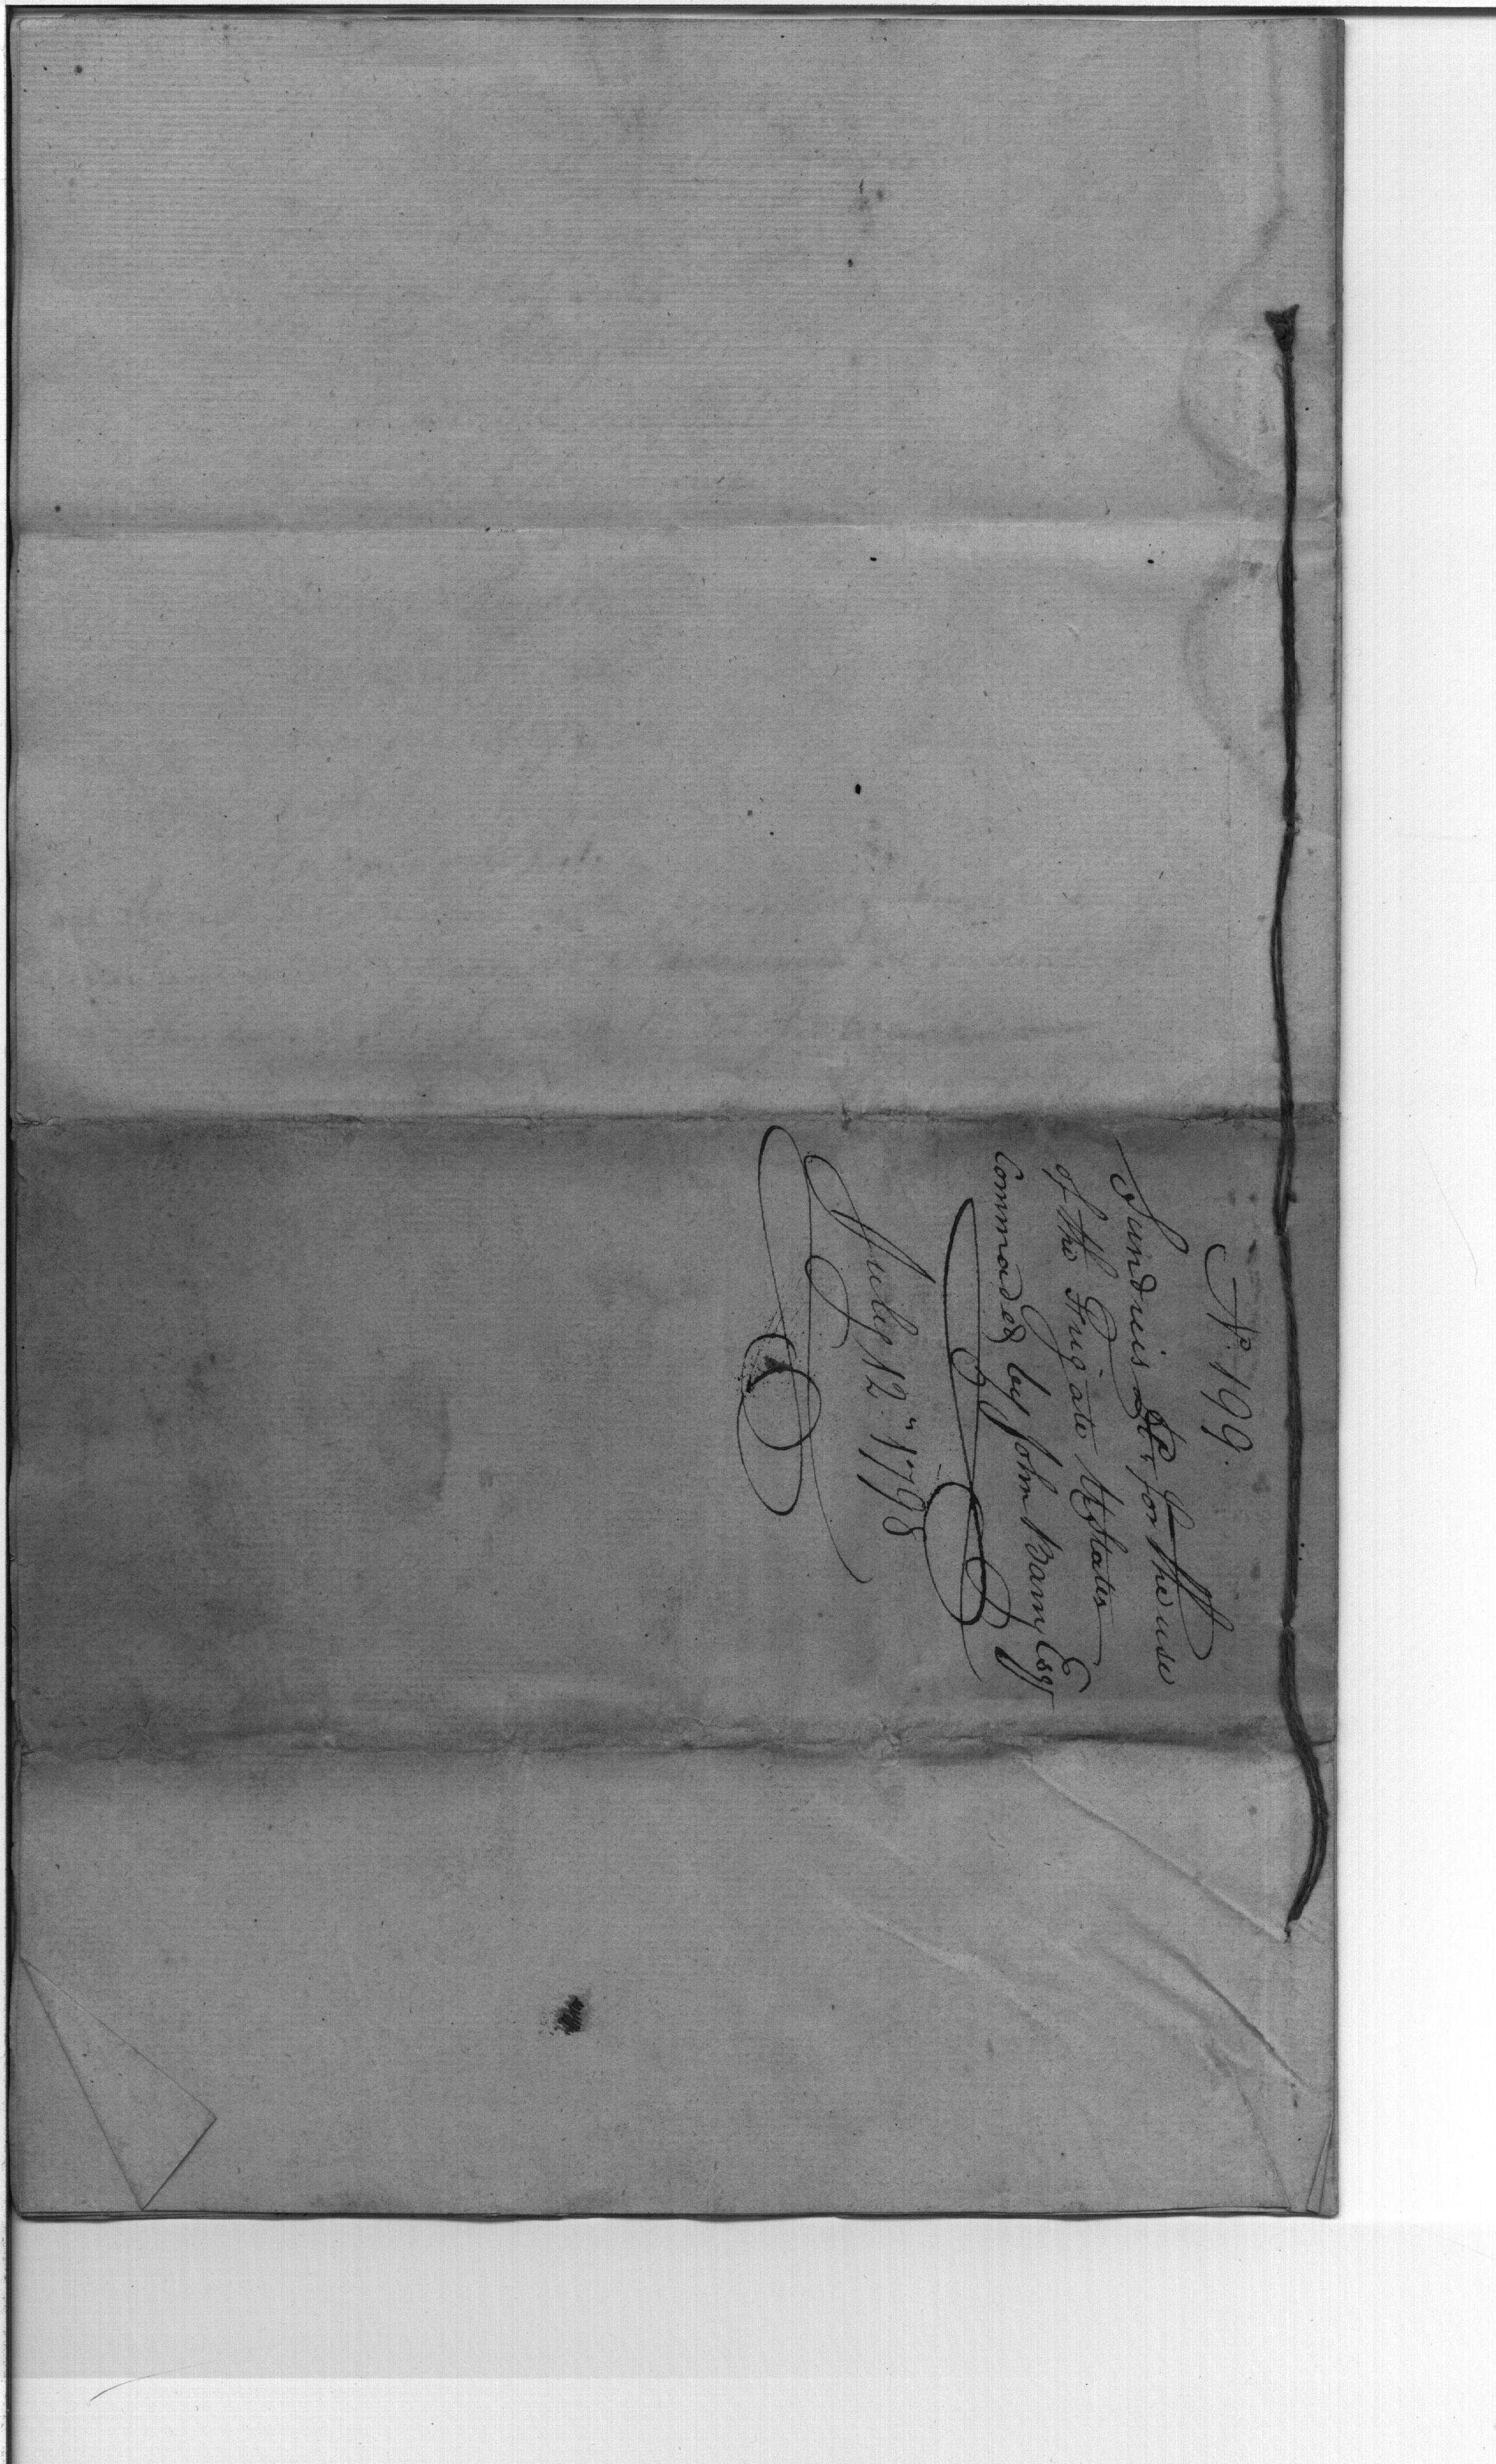 No. 199.
Sundries &c. for the use
of the Frigate UStates
Commaded by John Barry Esqr
July 12" 1798